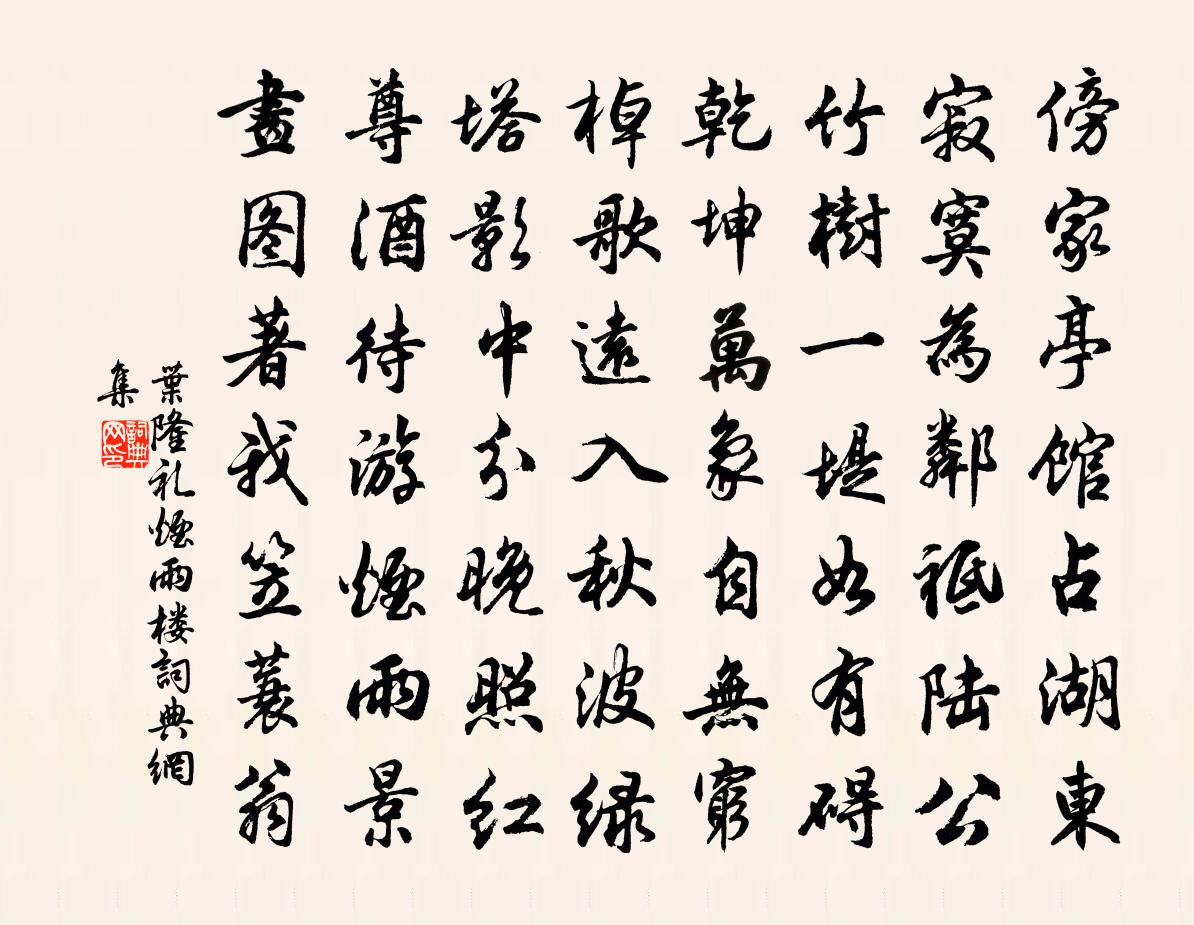 傍家亭馆占湖東
寂寞為鄰祗陆公
竹樹一堤如有碍
乾坤萬象自無窮
棹歌遠入秋波緑
塔影中分晚照红
尊酒待游煙雨景
畫图著我笠蓑翁
葉隆礼煙雨楼詞典網
集
詞典
网印